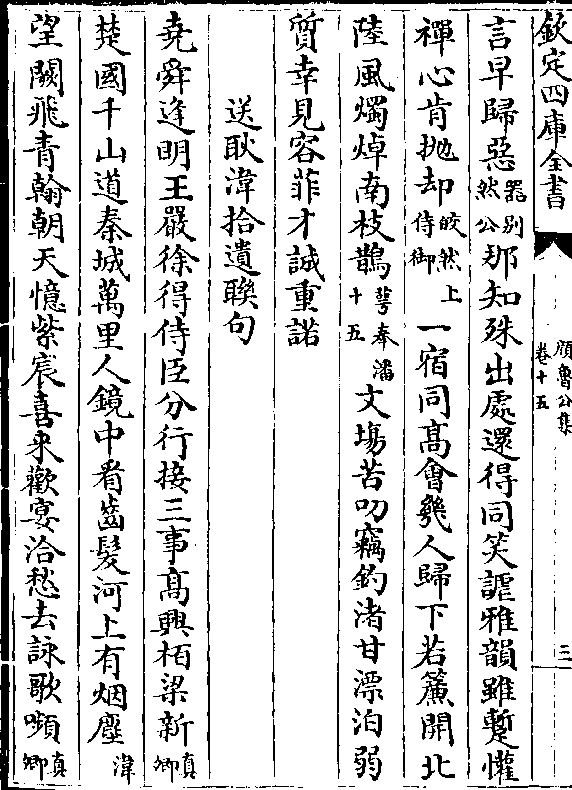 欽定四庫全書
顔魯公集
卷十五
三
言早歸惡然公器别那知殊出處還得同笑謔雅韻雖暫懽
禪心肯抛却皎然上侍御一宿同髙會幾人歸下若簾開北
陸風燭焯南枝鵲萼奉潘十五文塲苦叨竊釣渚甘漂泊弱
質幸見容菲才誠重諾
送耿湋拾遺聯句
堯舜逢明主嚴徐得侍臣分行接三事髙興栢梁新真卿
楚國千山道秦城萬里人鏡中看齒髪河上有烟塵湋
望闕飛青翰朝天憶紫宸喜来歡宴洽愁去詠歌頻真卿